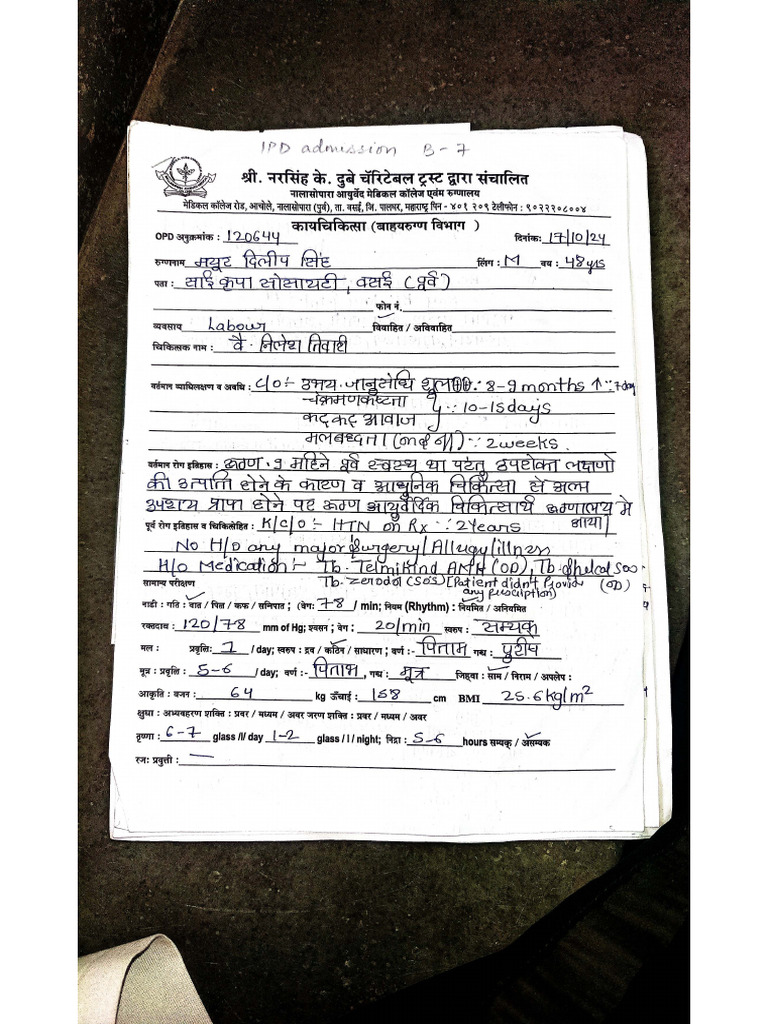 IPD admission B-7
श्री. नरसिंह के. दुबे चॅरिटेबल ट्रस्ट द्वारा संचालित
नालासोपारा आयुर्वेद मेडिकल कॉलेज एवंम रुग्णालय
मेडिकल कॉलेज रोड, आचोले, नालासोपारा (पुर्व), ता. वसई, जि. पालघर, महाराष्ट्र पिन - ४०१ २०९ टेलीफोन : ९०२२२०८००४
कायचिकित्सा (बाहयरुग्ण विभाग )
OPD अनुक्रमांक : 120644 दिनांक: 17/10/24
रुग्णनाम मयूर दिलीप सिंह लिंग : M वय : 48 yrs
पता : साई कृपा सोसायटी, वसई (पूर्व)
फोन नं.
व्यवसाय Labour विवाहित / अविवाहित
चिकित्सक नाम : वै. निलेश तिवारी
वर्तमान व्याधिलक्षण व अवधि : C/O:- उभय जानुसंधि शूल : 8-9 months ↑ : 7 day
चंक्रमणकष्टता
कट्कट् आवाज : 10-15 days
मलबध्दता (on & off) : 2 weeks.
वर्तमान रोग इतिहास : रूग्ण 9 महिने पूर्व स्वस्थ था परंतु उपरोक्त लक्षणो
की उत्पत्ति होने के कारण व आधुनिक चिकित्सा से अल्प
उपशय प्राप्त होने पर रूग्ण आयुर्वेदिक चिकित्सार्थ रूग्णालय मे
आया।
पूर्व रोग इतिहास व चिकित्सेतिहास : K/C/O :- HTN on Rx : 2 Years
No H/o any major surgery/Allergy/illness
H/o Medication :- Tb. Telmikind AMH (OD), Tb. 500
सामान्य परीक्षण Tb. zerodol (SOS) [Patient didn't provide any prescription) (OD)
नाडी : गति : वात / पित्त / कफ / सन्निपात ; (वेग: 78 / min; नियम (Rhythm) : नियमित / अनियमित
रक्तदाव : 120/78 mm of Hg; श्वसन ; वेग : 20/min स्वरुप : सम्यक्
मल : प्रवृत्ति: 1 / day; स्वरुप : द्रव / कठिन / साधारण ; वर्ण :- पिताभ गंध : पुरीष
मूत्र : प्रवृत्ति : 5-6 / day; वर्ण :- पिताभ, गंध : मूत्र जिहवा : साम / निराम / अपलेप :
आकृति : वजन : 64 kg ऊँचाई : 158 cm BMI 25.6 kg/m²
क्षुधा : अभ्यवहरण शक्ति : प्रवर / मध्यम / अवर जरण शक्ति : प्रवर / मध्यम / अवर
तृष्णा : 6-7 glass /l/ day 1-2 glass / l / night; निद्रा : 5-6 hours सम्यक् / असम्यक
रज: प्रवृत्ती : —